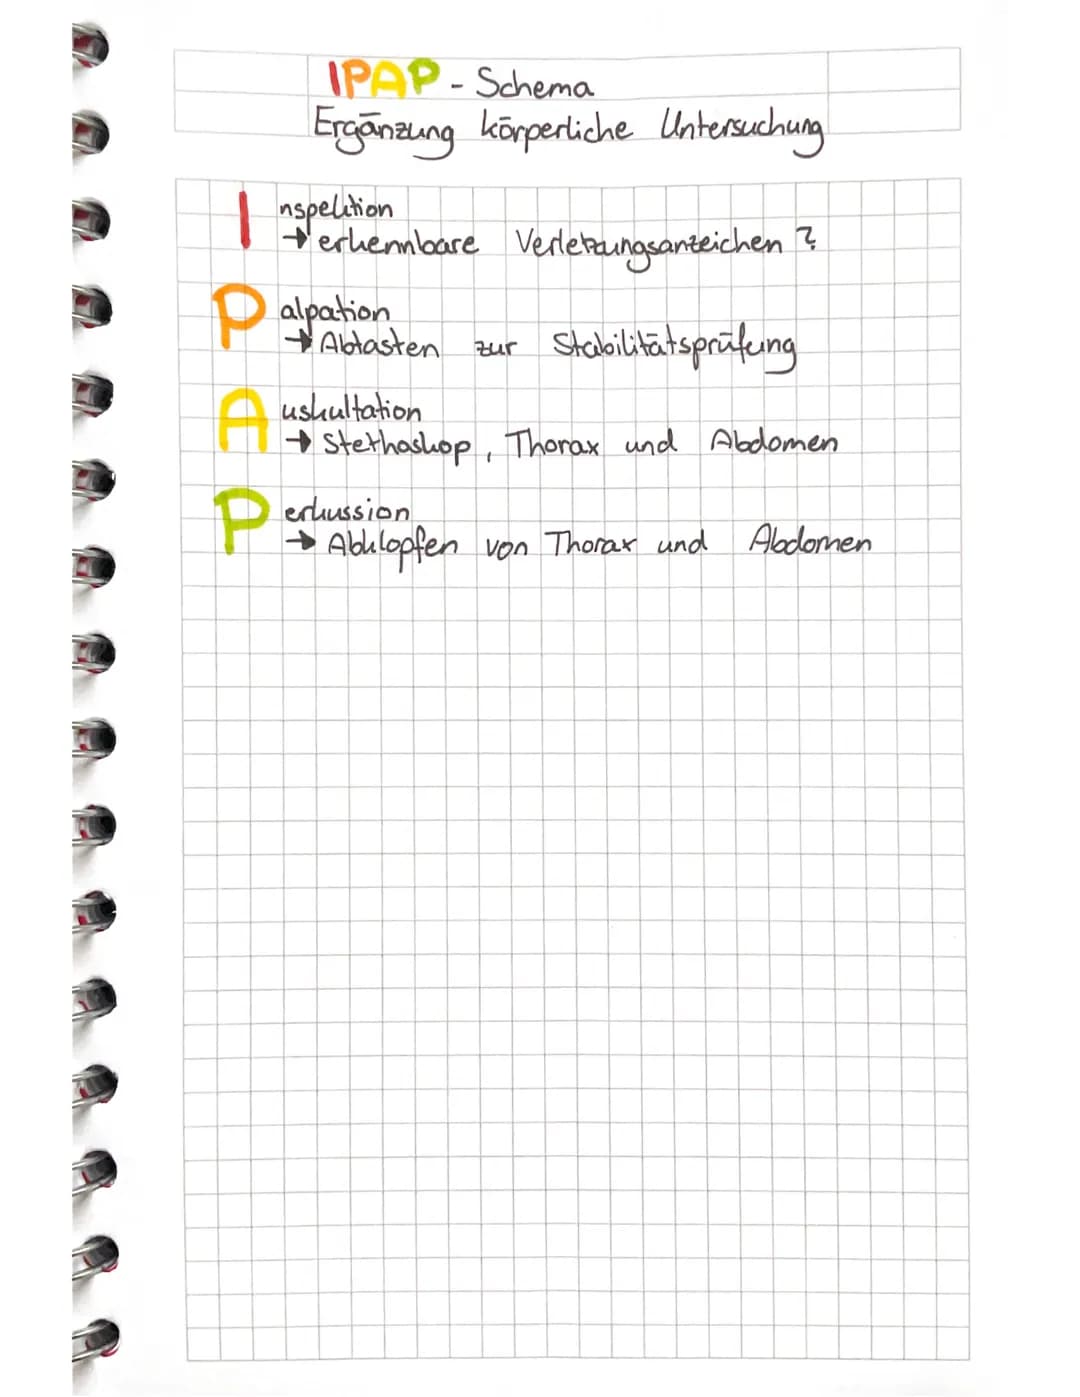 IPAP - Schema
Ergänzung körperliche Untersuchung
Inspektion
→ erkennbare Verletzungsanzeichen?
Palpation
→ Abtasten zur Stabilitätsprüfung
Auskultation
→ Stethoskop, Thorax und Abdomen
Perkussion
→ Abklopfen von Thorax und Abdomen